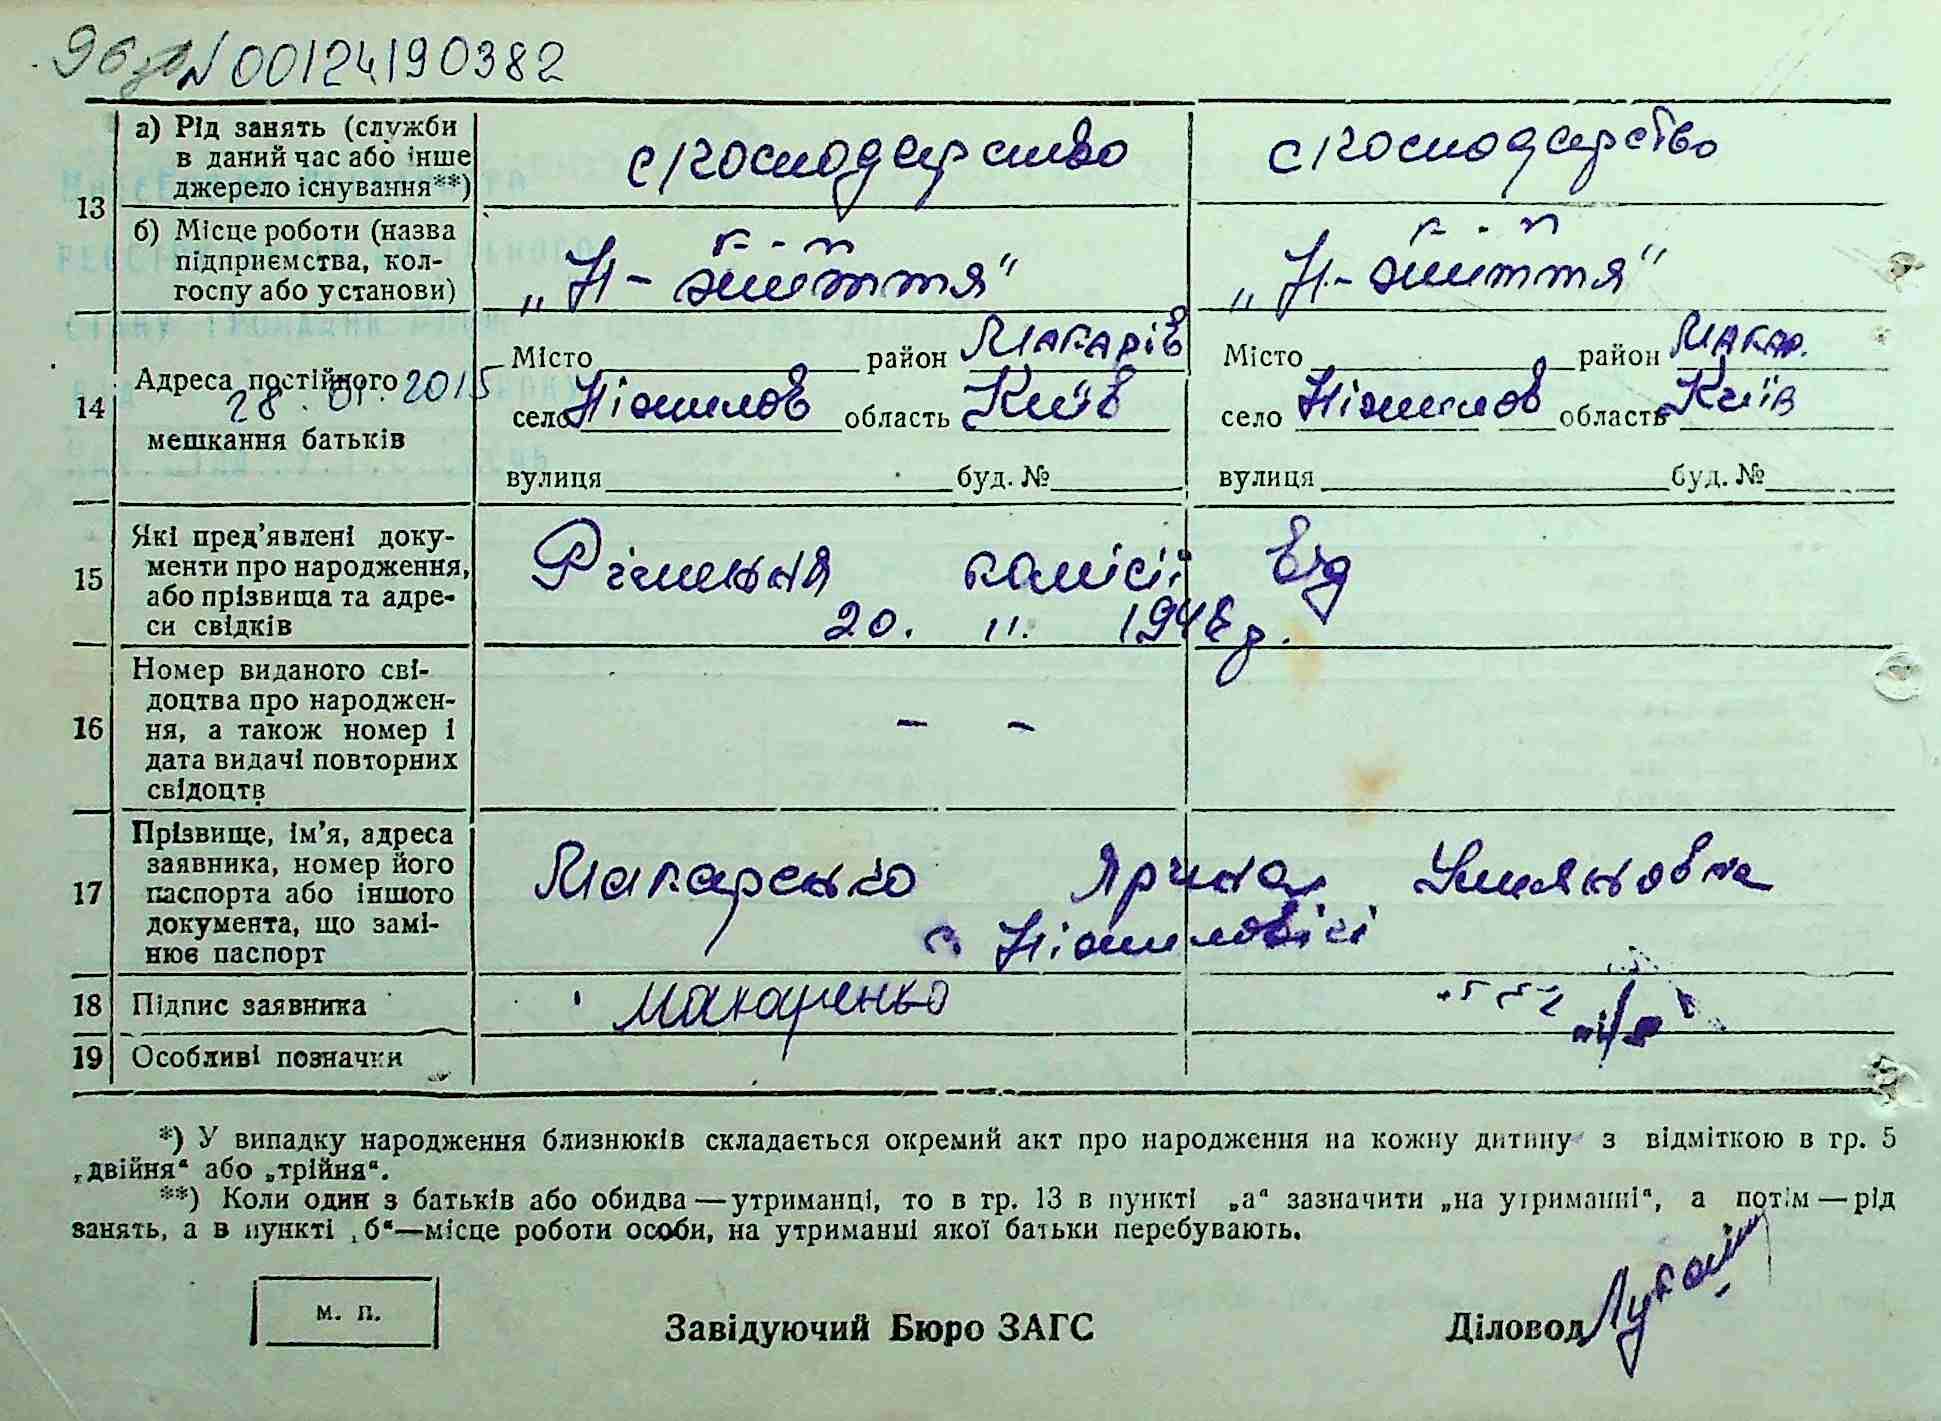 N 00124190382
13
а) Рід занять (служби в даний час або інше джерело існування**)
с господарство
с господарство
б) Місце роботи (назва підприємства, колгоспу або установи)
к-п
„Н-життя“
к-п
„Н-життя“
14
Адреса постійного
28.01.2015
мешкання батьків
Місто район Макарів
село Ніжилов область Київ
вулиця буд. №
Місто район Макар.
село Ніжилов область Київ
вулиця буд. №
15
Які пред’явлені документи про народження, або прізвища та адреси свідків
Рішення комісії від
20. II. 1948 р.
16
Номер виданого свідоцтва про народження, а також номер і дата видачі повторних свідоцтв
– –
17
Прізвище, ім’я, адреса заявника, номер його паспорта або іншого документа, що замінює паспорт
Макаренко Ярина Умяновна
с. Ніжиловічі
18
Підпис заявника
Макаренко
19
Особливі позначки
*) У випадку народження близнюків складається окремий акт про народження на кожну дитину з відміткою в гр. 5
„двійня“ або „трійня“.
**) Коли один з батьків або обидва—утриманці, то в гр. 13 в пункті „а“ зазначити „на утриманні“, а потім—рід
занять, а в пункті „б“—місце роботи особи, на утриманні якої батьки перебувають.
м. п.
Завідуючий Бюро ЗАГС
Діловод